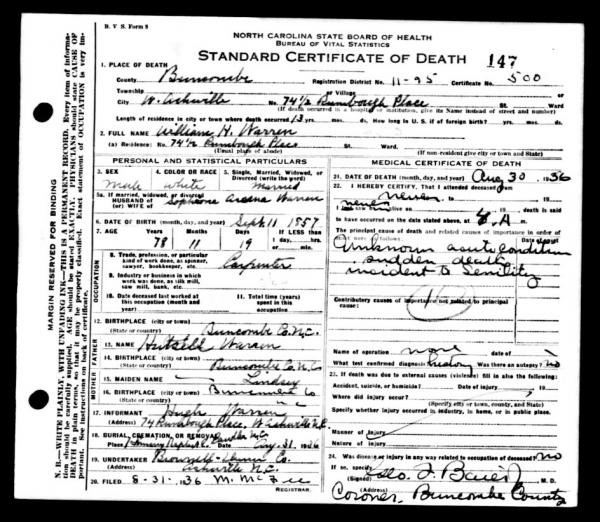 B. V. S. Form 8
NORTH CAROLINA STATE BOARD OF HEALTH
BUREAU OF VITAL STATISTICS
STANDARD CERTIFICATE OF DEATH 147
1. PLACE OF DEATH
County Buncombe Registration District No. 11-95 Certificate No. 500
Township or Village
City W. Asheville No. 74 1/2 Rumbough Place St. Ward
(If death occurred in a hospital or institution, give its Name instead of street and number)
Length of residence in city or town where death occurred 13 yrs. mos. ds. How long in U. S. if of foreign birth? yrs. mos. ds.
2. FULL NAME William H. Warren
(a) Residence: No. 74 1/2 Rumbough Place St.
(Usual place of abode) (If non-resident give city or town and State)
PERSONAL AND STATISTICAL PARTICULARS
3. SEX 4. COLOR OR RACE 5. Single, Married, Widowed, or Divorced (write the word)
male white married
5a. If married, widowed, or divorced
HUSBAND of (or) WIFE of Warren
6. DATE OF BIRTH (month, day, and year) Sept 11 1857
7. AGE Years Months Days If LESS than 1 day, hrs. or min.
78 11 19
8. Trade, profession, or particular kind of work done, as spinner, sawyer, bookkeeper, etc. Carpenter
9. Industry or business in which work was done, as silk mill, saw mill, bank, etc.
10. Date deceased last worked at this occupation (month and year)
11. Total time (years) spent in this occupation
12. BIRTHPLACE (city or town) (State or country) Buncombe Co. N.C.
13. NAME Warren
14. BIRTHPLACE (city or town) (State or country) Buncombe Co. N.C.
15. MAIDEN NAME Lindsey
16. BIRTHPLACE (city or town) (State or country) Buncombe Co N C
17. INFORMANT Hugh Warren
(Address) 74 Rumbough Place, W Asheville N.C.
18. BURIAL, CREMATION, OR REMOVAL
Place Date Aug. 31 - 1936
19. UNDERTAKER Co.
(Address) Asheville N.C.
20. FILED 8-31-36
REGISTRAR.
MEDICAL CERTIFICATE OF DEATH
21. DATE OF DEATH (month, day, and year) Aug 30, 1936
22. I HEREBY CERTIFY, That I attended deceased from never
I last saw h alive on never, 19 death is said
to have occurred on the date stated above, at A. m.
The principal cause of death and related causes of importance in order of onset were as follows: Date of onset
Unknown acute condition
sudden death
incident to Senility
Contributory causes of importance not related to principal cause:
Name of operation none Date of
What test confirmed diagnosis? history Was there an autopsy? no
23. If death was due to external causes (violence) fill in also the following:
Accident, suicide, or homicide? Date of injury 19
Where did injury occur?
(Specify city or town, county, and State)
Specify whether injury occurred in industry, in home, or in public place.
Manner of Injury
Nature of injury
24. Was disease or injury in any way related to occupation of deceased? no
If so, specify
(Signed) Geo. F. Baier Jr M. D.
Coroner, Buncombe County
MARGIN RESERVED FOR BINDING
N. B.—WRITE PLAINLY, WITH UNFADING INK—THIS IS A PERMANENT RECORD. Every item of information should be carefully supplied. AGE should be stated EXACTLY. PHYSICIANS should state CAUSE OF DEATH in plain terms, so that it may be properly classified. Exact statement of OCCUPATION is very important. See instructions on back of certificate.
OCCUPATION
FATHER
MOTHER